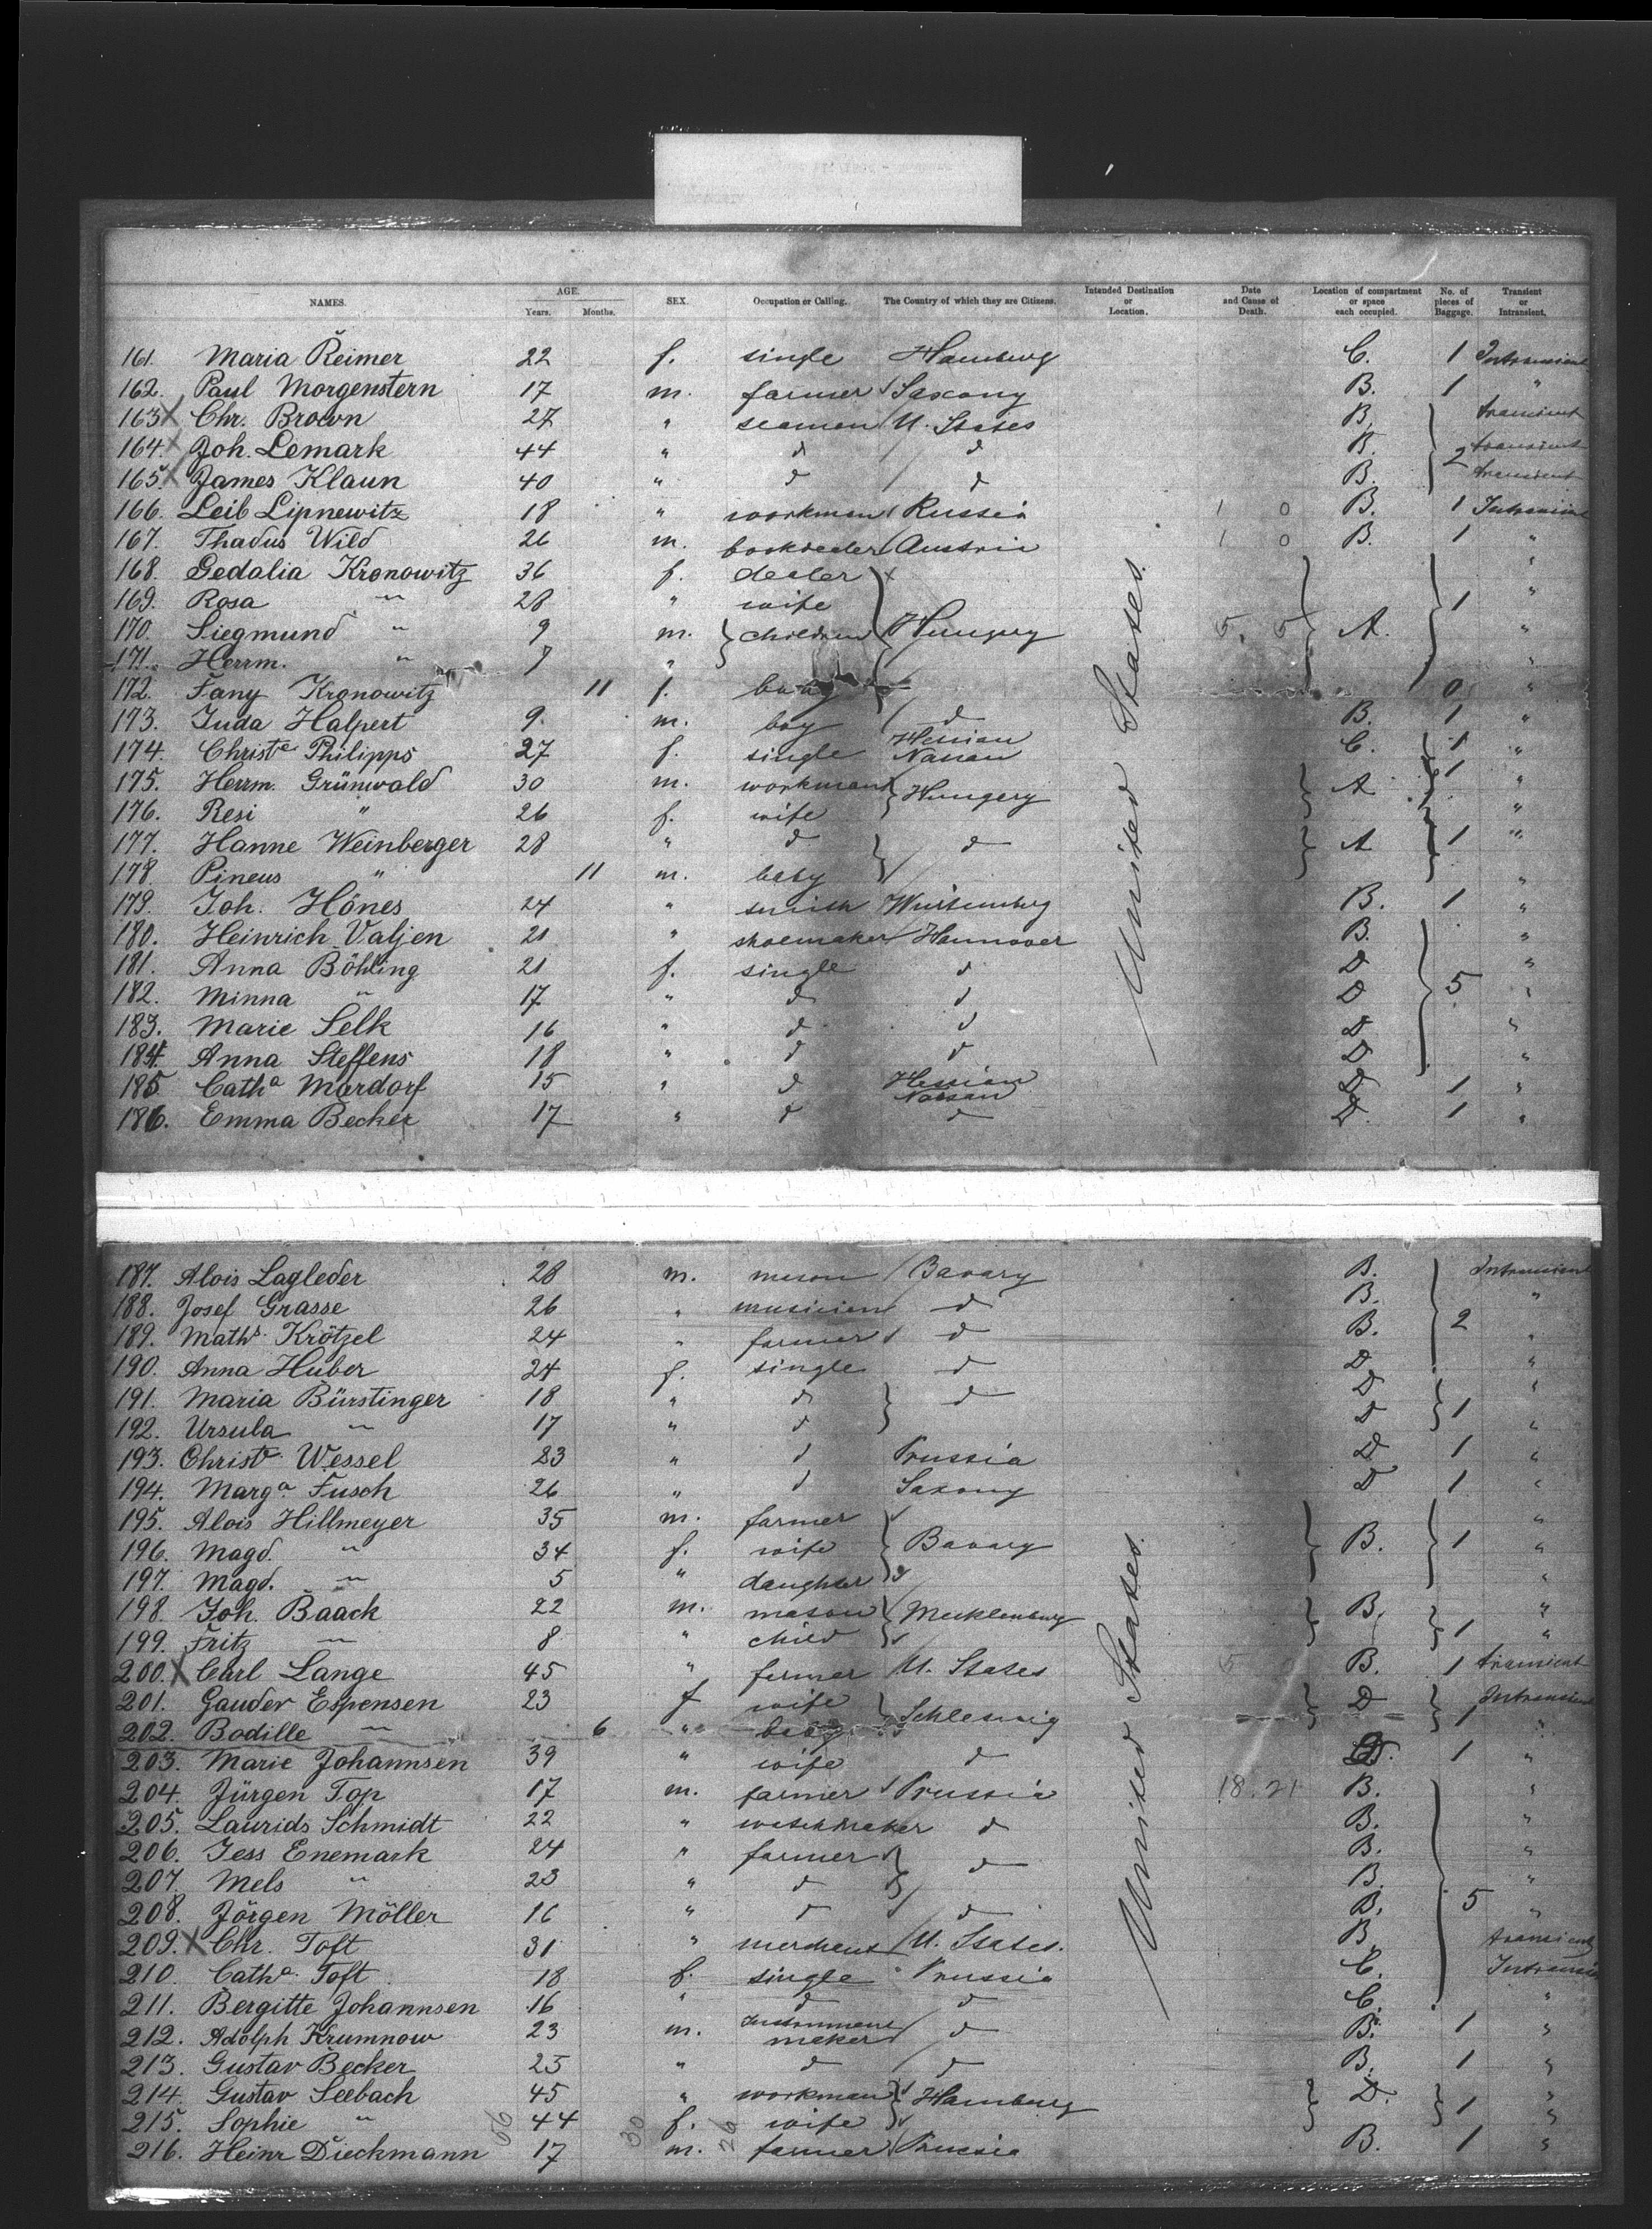 NAMES. AGE. Years. Months. SEX. Occupation or Calling. The Country of which they are Citizens. Intended Destination or Location. Date and Cause of Death. Location of compartment or space each occupied. No. of pieces of Baggage. Transient or Intransient.
161. Maria Reimer 22 f. single Hamburg C. 1 Intransient
162. Paul Morgenstern 17 m. farmer Saxony B. 1 "
163 X Chr. Brown 27 " seaman U. States B. transient
164. X Joh. Lemark 44 " d d B. 2 transient
165. X James Klaun 40 " d d B. transient
166. Leib Lipnewitz 18 " workman Russia 1 0 B. 1 Intransient
167. Thadus Wild 26 m. bookdealer Austria 1 0 B. 1 "
168. Gedalia Kronowitz 36 f. dealer "
169. Rosa " 28 " wife 1 "
170. Siegmund " 9 m. children Hungery 5. 5 A. "
171. Herrm. " 7 " "
172. Fany Kronowitz 11 f. baby 0 "
173. Juda Halpert 9. m. boy d B. 1 "
174. Christe Philipps 27 f. single Hessian Nassau C. 1 "
175. Herrm. Grünwald 30 m. workman Hungery A 1 "
176. Resi " 26 f. wife "
177. Hanne Weinberger 28 " d d A 1 "
178. Pineus " 11 m. baby "
179. Joh. Hönes 24 " smith Würtemberg B. 1 "
180. Heinrich Valjen 21 " shoemaker Hannover B. "
181. Anna Böhling 21 f. single d D "
182. Minna " 17 " d d D 5 "
183. Marie Selk 16 " d d D "
184. Anna Steffens 18 " d d D "
185 Catha Mardorf 15 " d Hessian Nassau D 1 "
186. Emma Becker 17 " d d D. 1 "
United States.
187. Alois Lagleder 28 m. mason Bavary B. Intransient
188. Josef Grasse 26 " musician d B. "
189. Maths. Krötzel 24 " farmer d B. 2 "
190. Anna Huber 24 f. single d D "
191. Maria Bürstinger 18 " d d D "
192. Ursula " 17 " d D 1 "
193. Christe Wessel 23 " d Prussia D 1 "
194. Marga. Fusch 26 " d Saxony D 1 "
195. Alois Hillmeyer 35 m. farmer "
196. Magd. " 34 f. wife Bavary B. 1 "
197. Magd. " 5 " daughter "
198. Joh. Baack 22 m. mason Mecklenburg B. "
199. Fritz " 8 " child 1 "
200. X Carl Lange 45 " farmer U. States 5 B. 1 transient
201. Gauder Espensen 23 f wife Schleswig D Intransient
202. Bodille " 6 " baby 1 "
203. Marie Johannsen 39 " wife d 1 "
204. Jürgen Top 17 m. farmer Prussia 18. 21 B. "
205. Laurids Schmidt 22 " d B. "
206. Jess Enemark 24 " farmer d B. "
207. Mels " 23 " d B. "
208. Jörgen Möller 16 " d d B. 5 "
209. X Chr. Toft 31 " merchant U. States. B. transient
210. Catha. Toft 18 f. single Prussia C. Intransient
211. Bergitte Johannsen 16 " d d C. "
212. Adolph Krumnow 23 m. Instrument maker d B. 1 "
213. Gustav Becker 25 " d d B. 1 "
214. Gustav Seebach 45 " workman Hamburg D. "
215. Sophie " 44 f. wife 1 "
216. Heinr Dieckmann 17 m. farmer Prussia B. 1 "
United States.
56 30 26